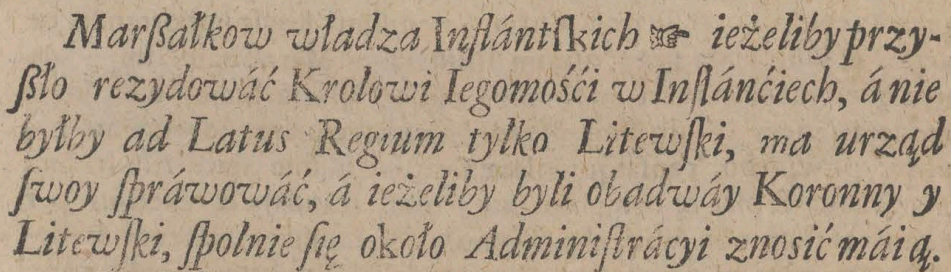 Marßałkow władza Inflántſkich ☞ ieżeliby przy-
ßło rezydowáć Krolowi Iegomośći w Inflánćiech, á nie
byłby ad Latus Regium tylko Litewſki, ma urząd
ſwoy ſpráwowáć, á ieżeliby byli obadwáy Koronny y
Litewſki, ſpolnie ſię około Adminiſtrácyi znosić máią.